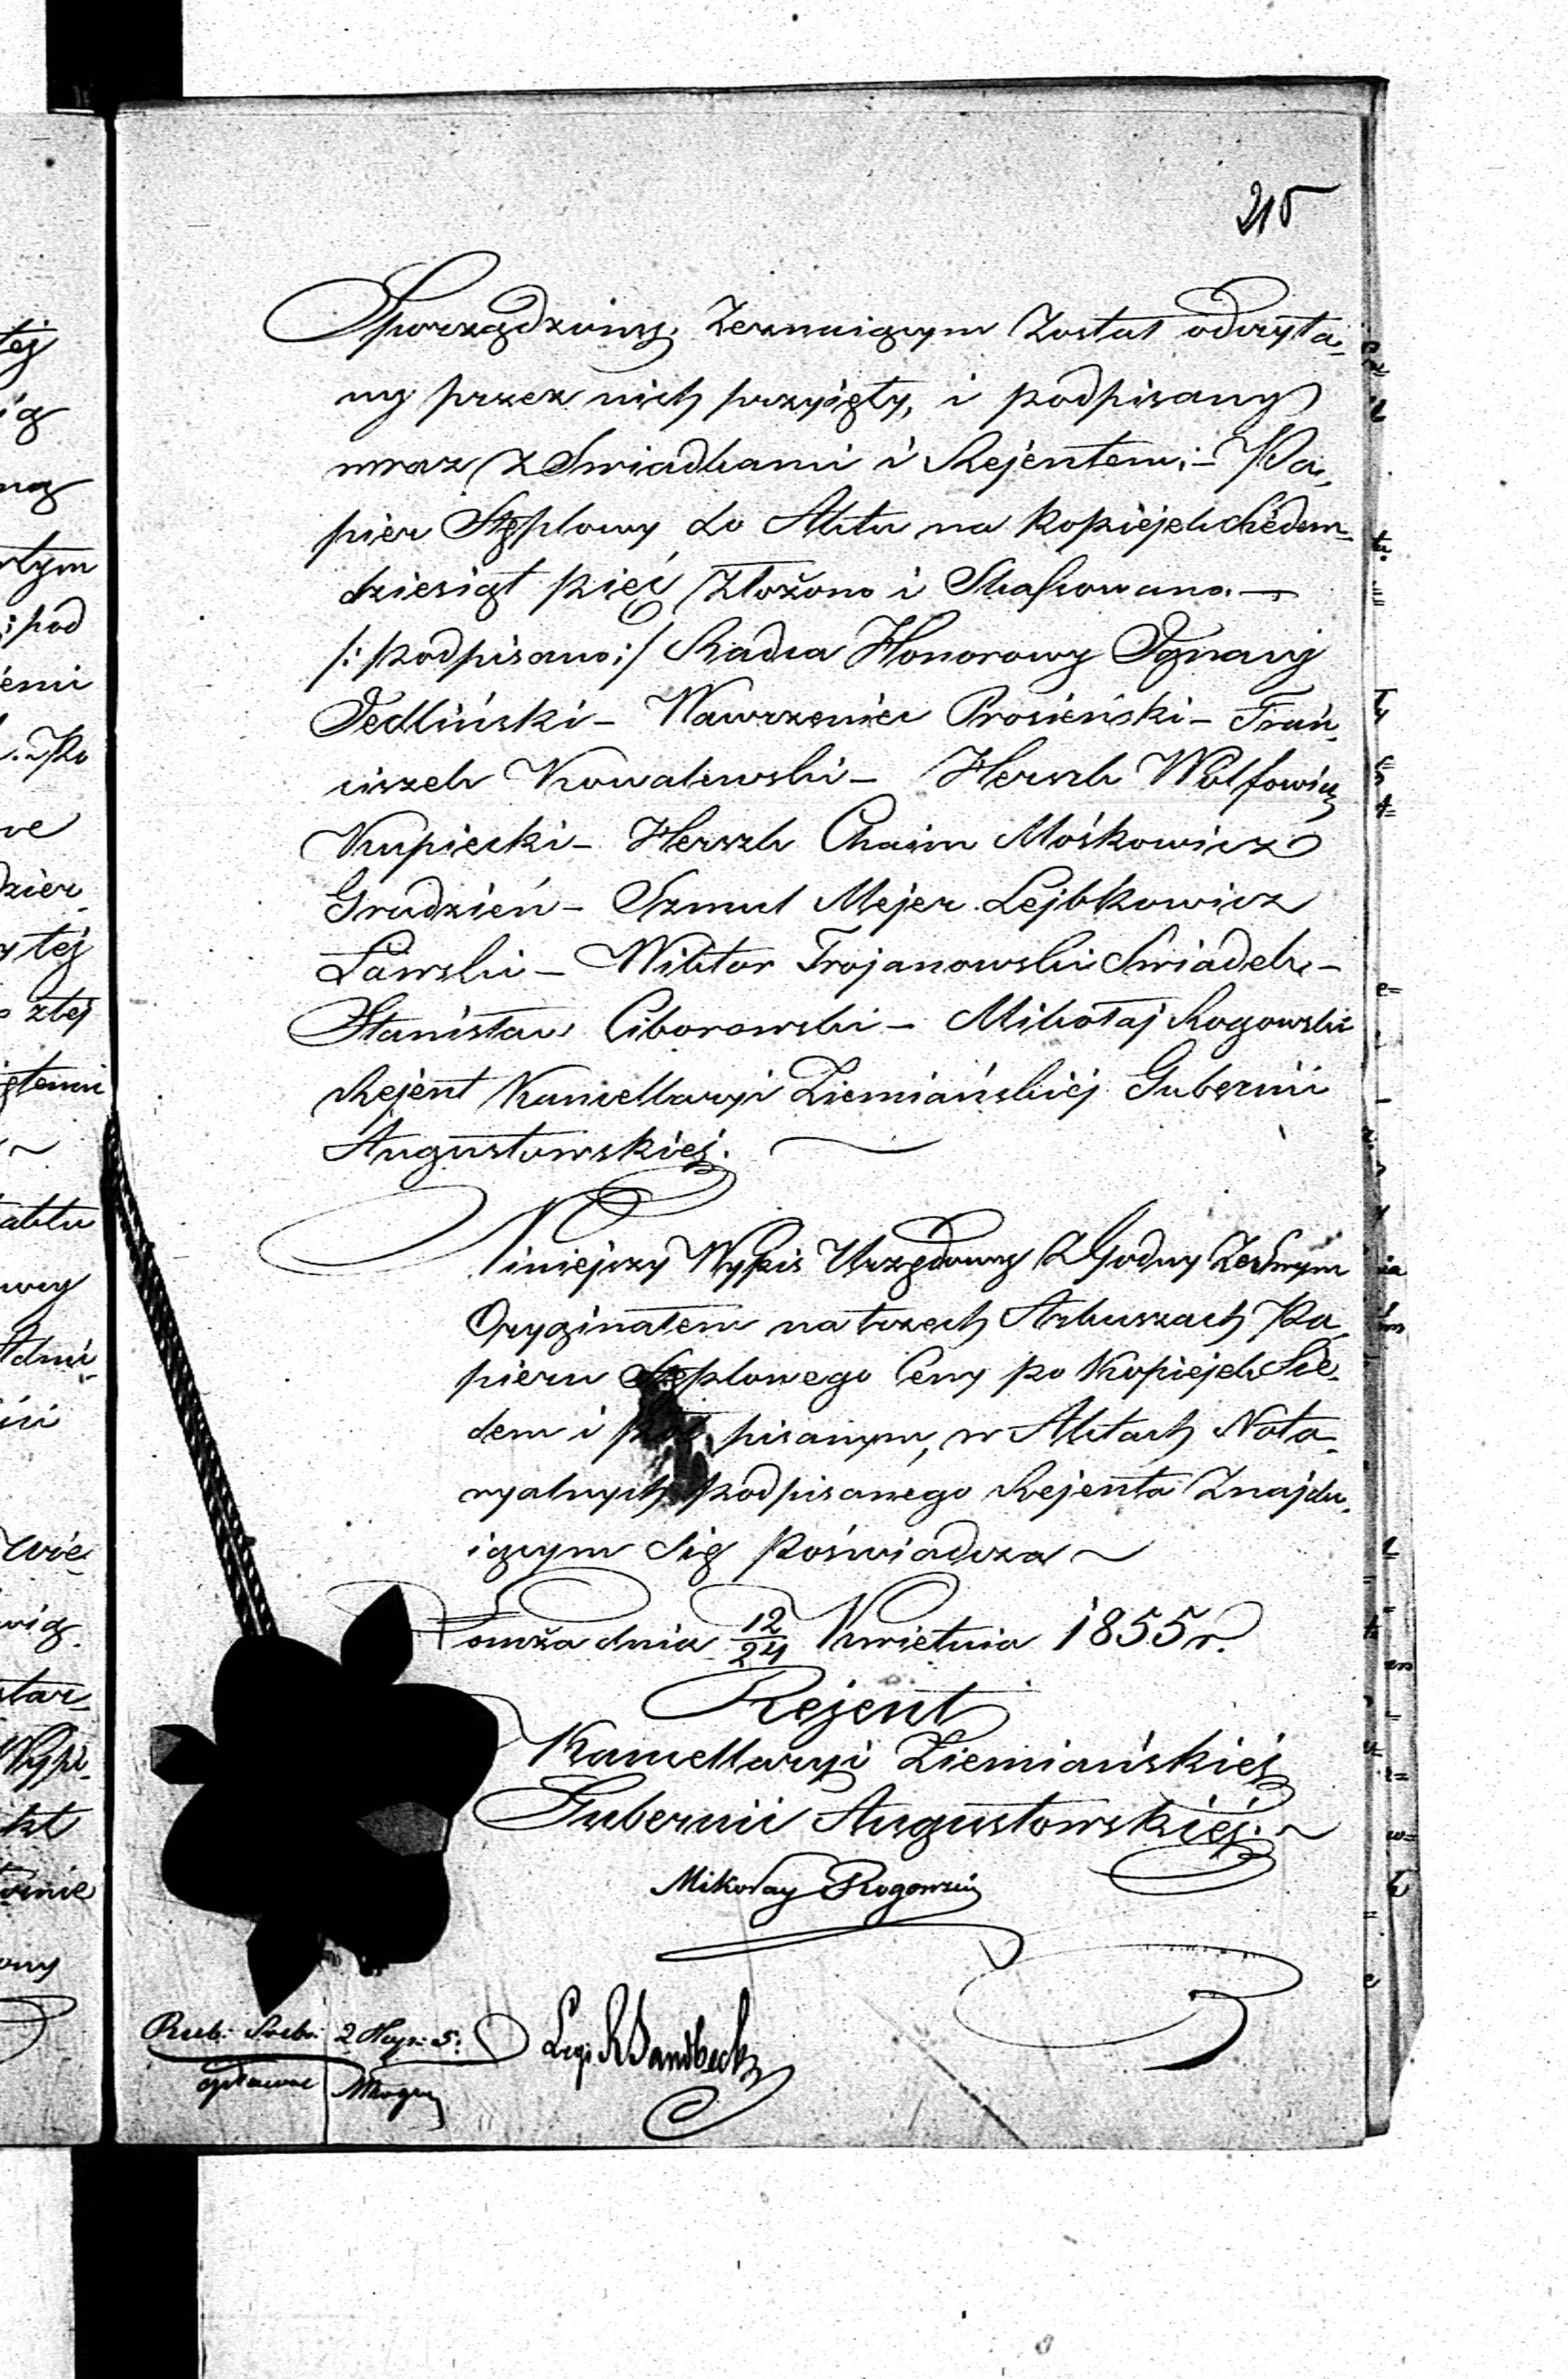 215
Sporządzony, Zeznaiącym Został odczyta-
ny przez nich przyięty, i podpisany
wraz z Swiadkami i Rejentem; - Pa-
pier Stęplowy do Aktu na kopiejek Siedem-
dziesiąt pięć Złożono i Skassowano. —
/: podpisano :/ Radca Honorowy Ignacy
Jedliński - Wawrzeniec Prosieński - Fran-
ciszek Kowalewski - Herszk Wolfowicz
Kupiecki - Herszk Chaim Mośkowicz
Grudzień - Szmul Mejer Lejbkowicz
Ławski - Wiktor Trojanowski Swiadek -
Stanisław Ciborowski - Mikołaj Rogowski
Rejent Kancellaryi Ziemiańskiéj Gubernii
Augustowskiéj.
Niniejszy Wypis Urzędowy Zgodny Ze Swym
Oryginałem na trzech Arkuszach Pa-
pieru Stęplowego Ceny po Kopiejek Sie-
dem i pół pisanym, w Aktach Nota-
ryalnych podpisanego Rejenta Znajdu-
iącym Się Poświadcza ~
Łomża dnia 12/24 Kwietnia 1855 r.
Rejent
Kancellaryi Ziemiańskiéj
Gubernii Augustowskiéj. ~
Mikołay Rogowski
Rub: Srebr: 2 Kop: 5: